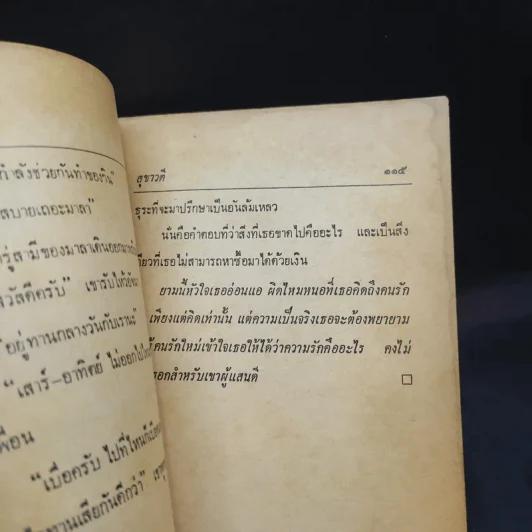 กำลังช่วยกันทำของกิน”
สบายเถอะมาลา”
รู่สามีของมาลาเดินออกมา
วัสดีครับ” เขารับไหว้
อยู่ทานกลางวันกับเรานะ”
“เสาร์-อาทิตย์ ไม่ออกไปไหน
พื่อน
“เบื่อครับ ไปที่ไหนก็
ทานเสียกันดีกว่า”
สุขาวดี ๑๑๕
ธุระที่จะมาปรึกษาเป็นอันล้มเหลว
นั่นคือคำตอบที่ว่าสิ่งที่เธอขาดไปคืออะไร และเป็นสิ่ง
เดียวที่เธอไม่สามารถหาซื้อมาได้ด้วยเงิน
ยามนี้หัวใจเธออ่อนแอ ผิดไหมหนอที่เธอคิดถึงคนรัก
เพียงแต่คิดเท่านั้น แต่ความเป็นจริงเธอจะต้องพยายาม
ห้คนรักใหม่เข้าใจเธอให้ได้ว่าความรักคืออะไร คงไม่
รอกสำหรับเขาผู้แสนดี □